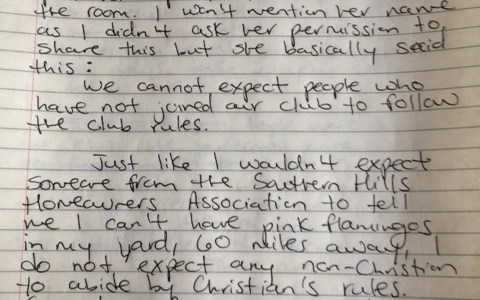 the room. I won't mention her name
as I didn't ask her permission to
share this but she basically said
this:
We cannot expect people who
have not joined our club to follow
the club rules.
Just like I wouldn't expect
someone from the Southern Hills
Homeowners Association to tell
me I can't have pink flamingos
in my yard, 60 miles away, I
do not expect any non-Christian
to abide by Christian's rules.